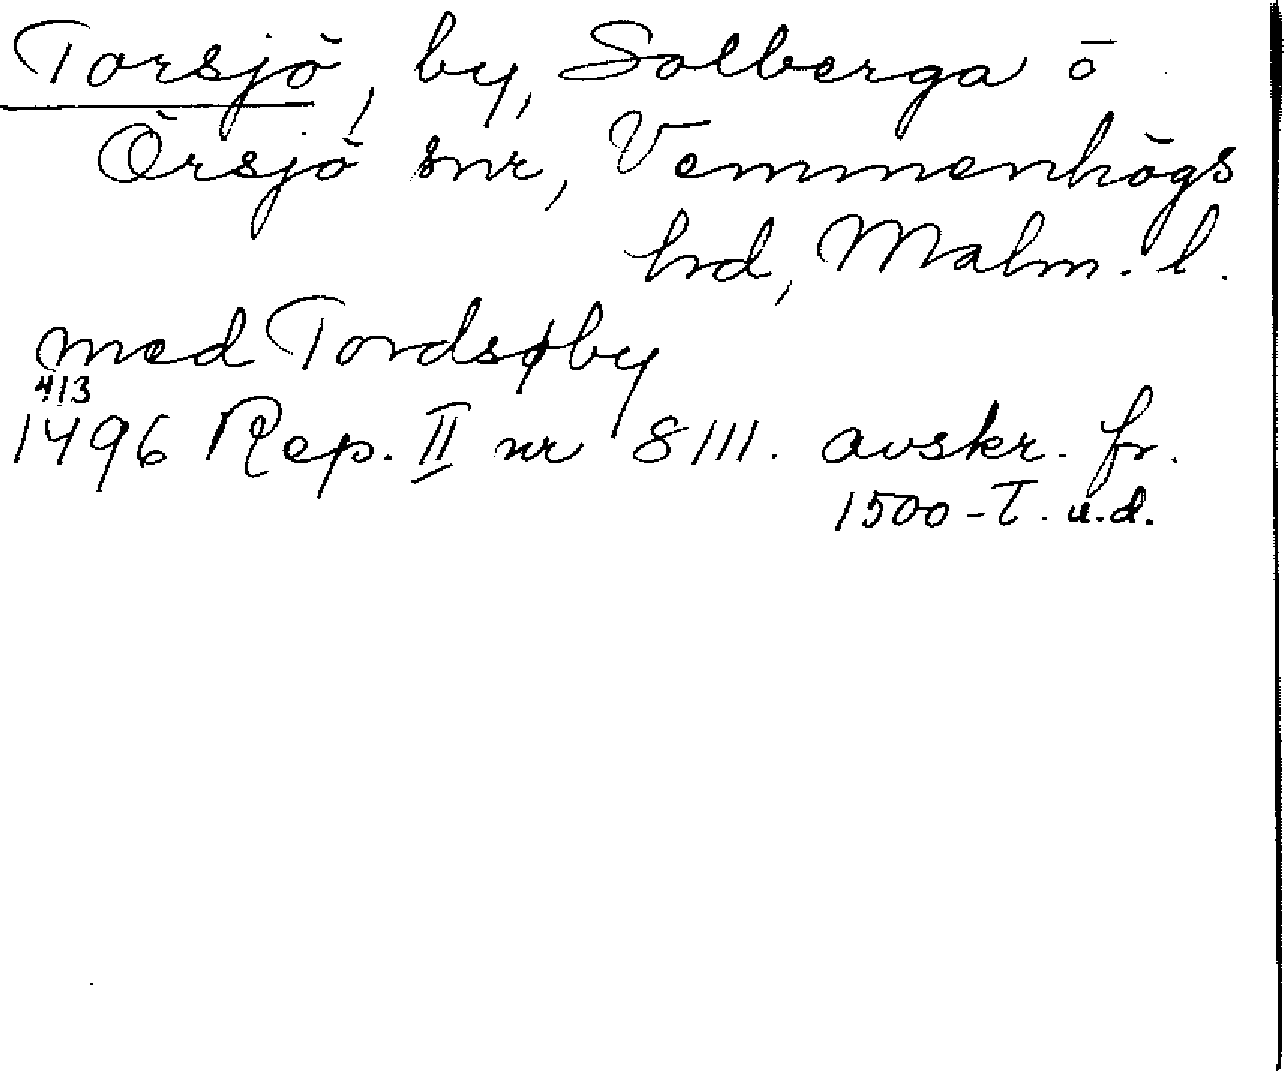 Torsjö, by, Solberga o
Örsjö snr, Vemmenhögs
hrd, Malm. l.
med Tordsøby
4/3
1496 Rep. II nr 8111. avskr. fr.
1500-T. u.d.